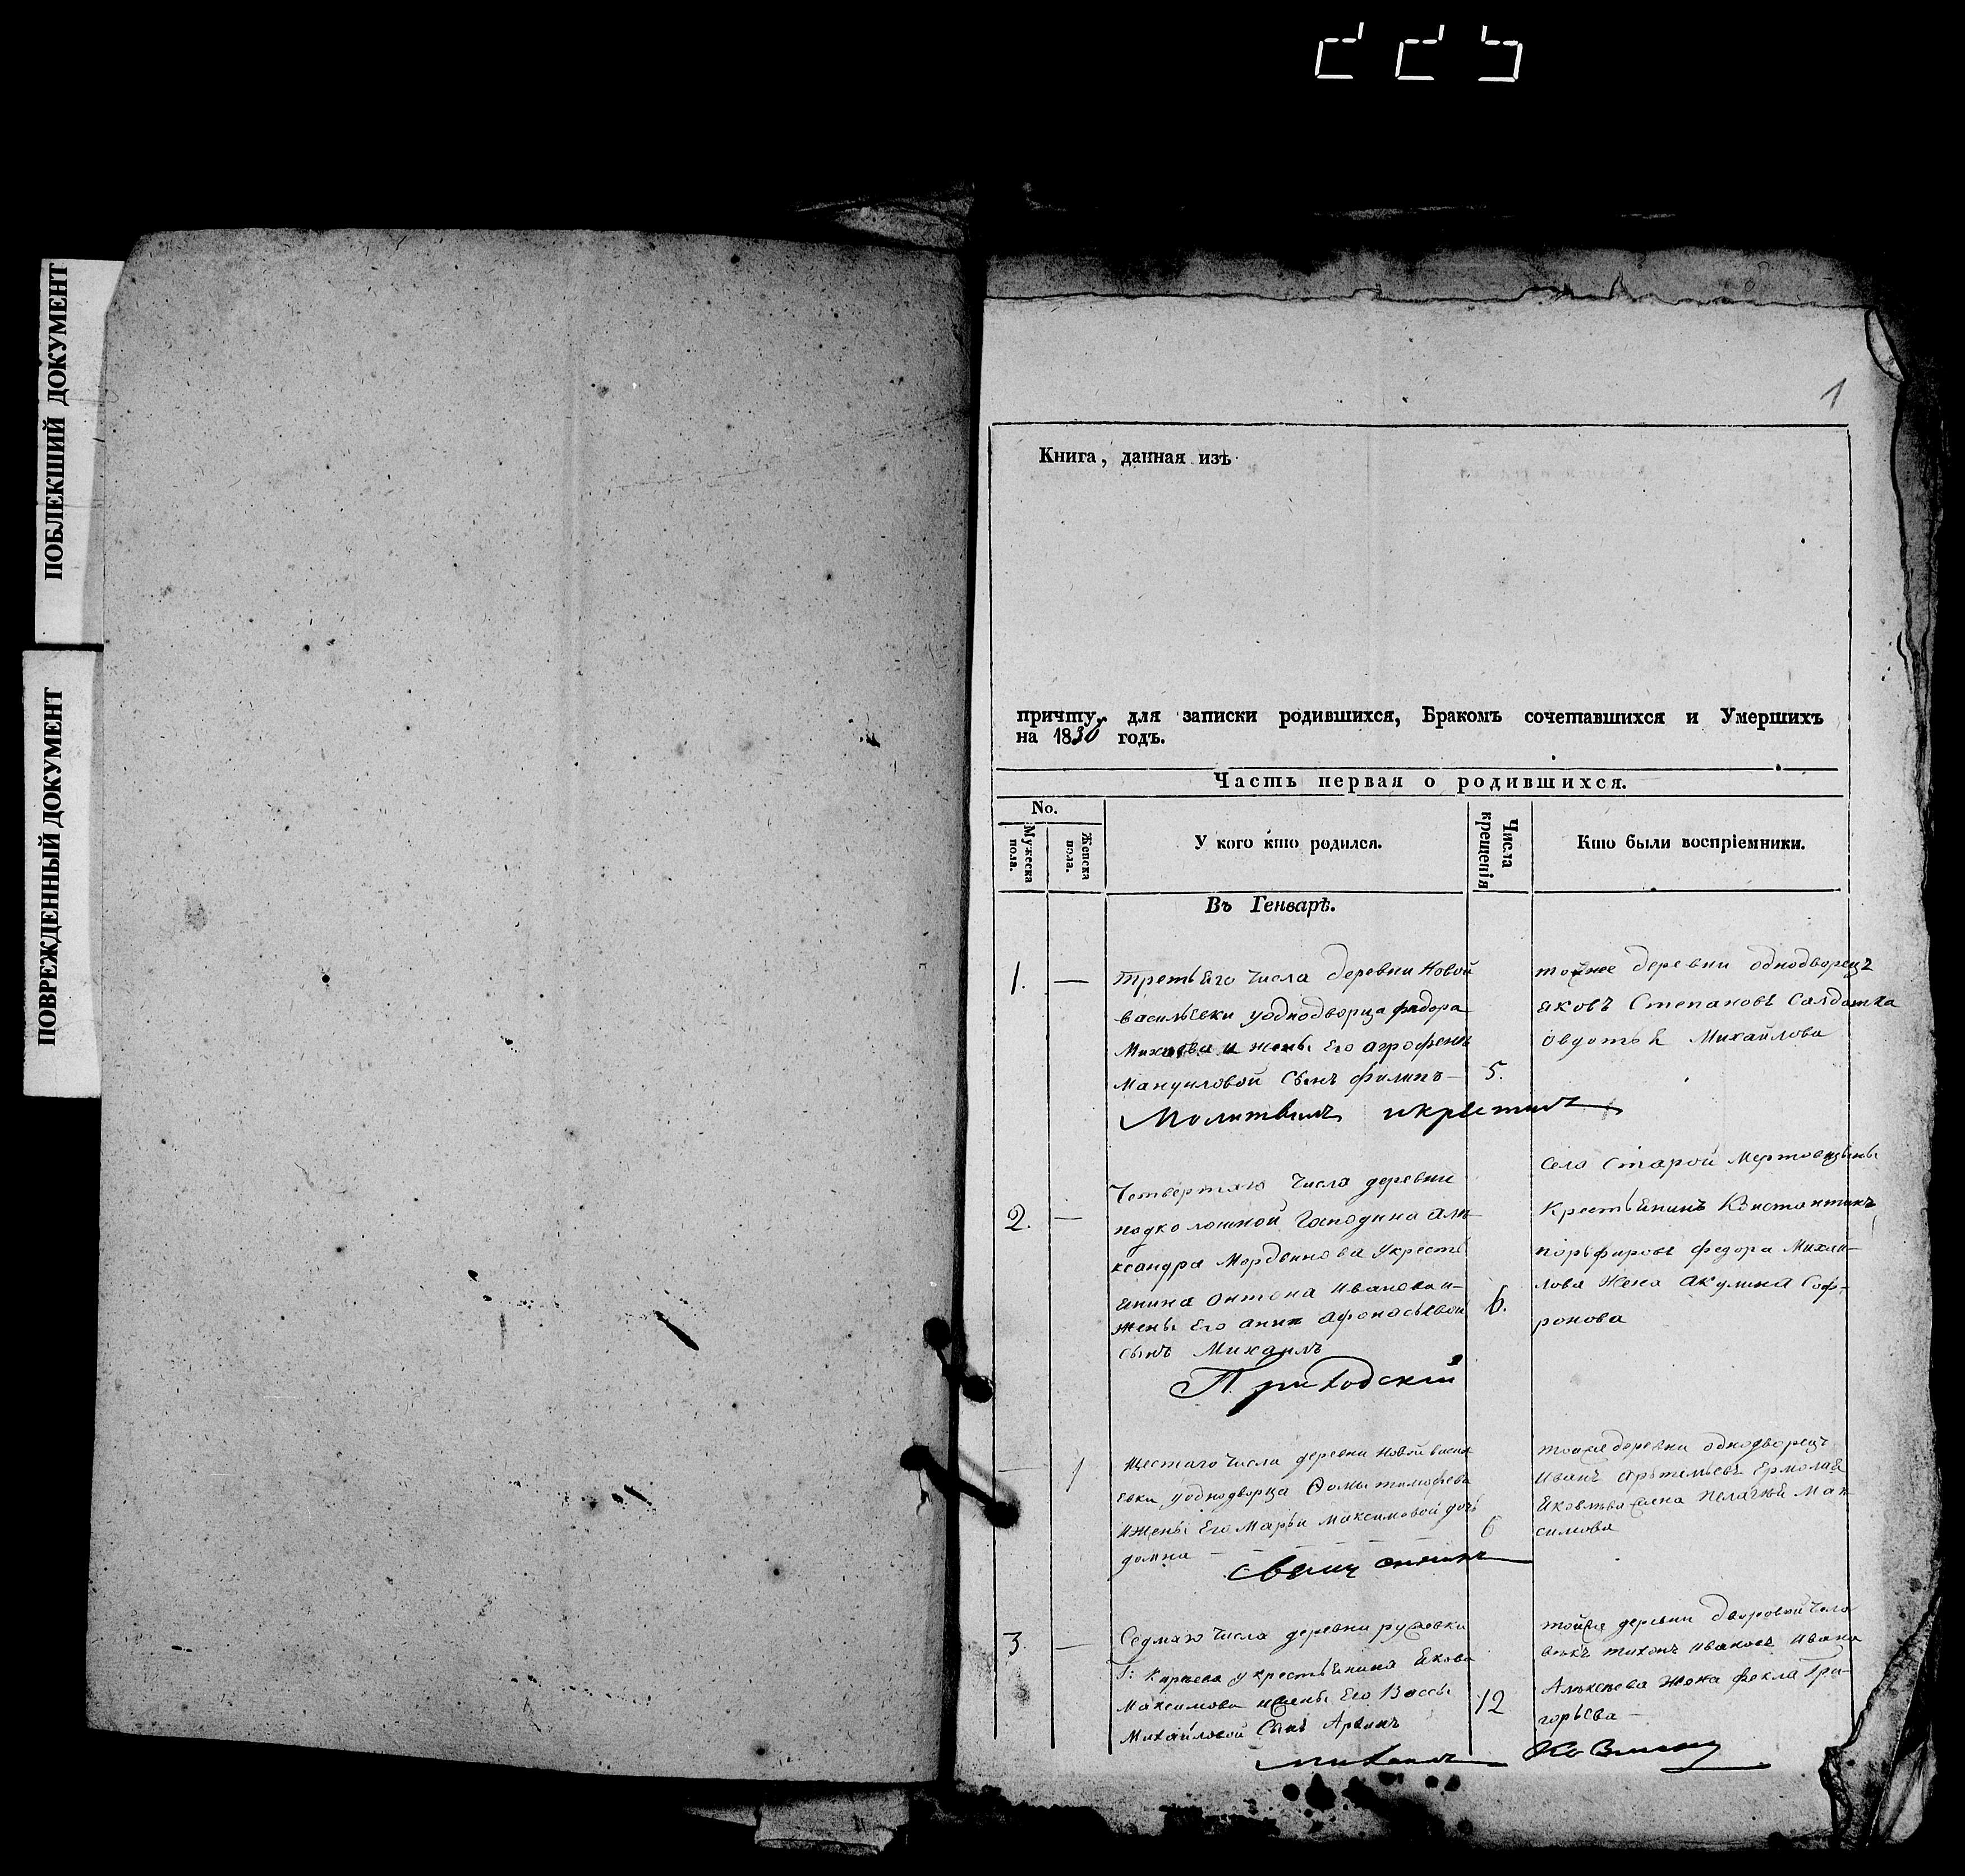 ПОБЛЕКШИЙ ДОКУМЕНТ
ПОВРЕЖДЕННЫЙ ДОКУМЕНТ
1
Книга, данная изъ
причту, для записки родившихся, Бракомъ сочетавшихся и Умершихъ
на 1830 годъ.
Часть первая о родившихся.
No.
Мужеска пола.
Женска пола.
У кого кто родился.
Числа крещенія
Кто были воспріемники.
Въ Генварѣ.
1. —
третьего числа деревни Новой
васильевки у однодворца федора
и жены его агрофены
Мануиловой сынъ филипъ —
5.
тойже деревни однодворецъ
яковъ Степановъ Салдатка
овдотья Михайлова
Молитвилъ и крестилъ
2. —
Четвертаго числа деревни
подколошной Господина але
ксандра Мордвинова у кресть
янина онтона иванова и
жены его анны афонасьевой
сынъ Михаилъ
6.
села Старой
Крестьянинъ Констонтинъ
порьфировъ федора Михаи-
лова жена акулина Соф-
ронова
Приходскій
— 1
шестаго числа деревни новой василь
евки у однодворца Ѳомы тимофеева
и жены Его Марьи Максимовой дочь
домна
6
тойже деревни однодворецъ
иванъ артемьевъ Ермолая
Яковлева жена пелагея Мак
симова
священникъ
3. —
Седмаго числа деревни
Г: Киреева у крестьянина Якова
Максимова и жены Его Вассы
Михайловой Сынъ
12
тойже деревни дворовой чело
векъ тихонъ ивановъ ивана
Алексеева жена фекла Гри-
горьева —
михаилъ